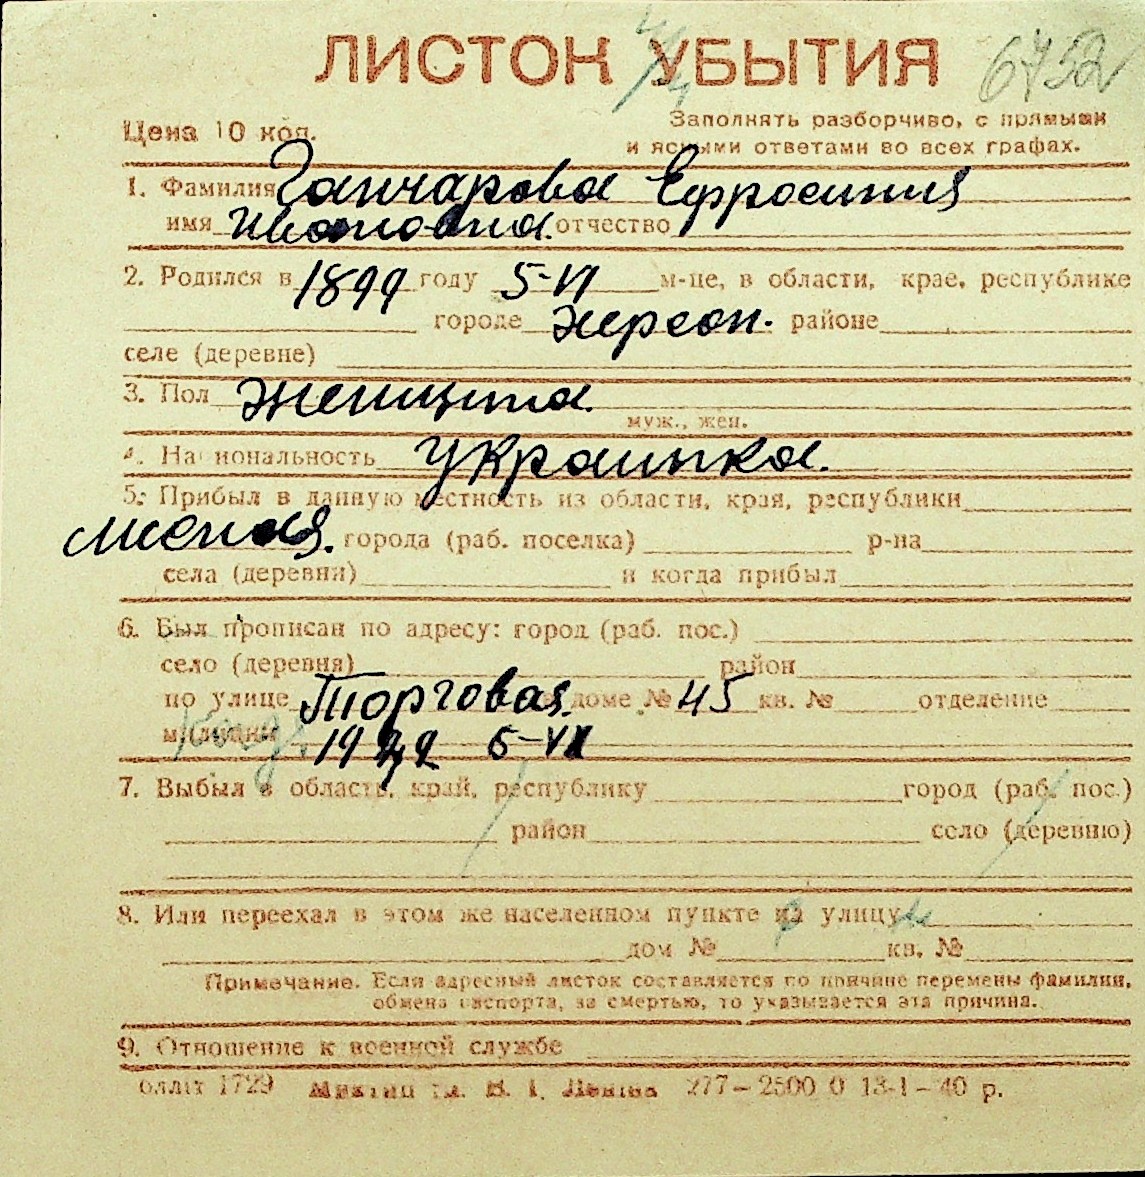 ЛИСТОК УБЫТИЯ 6752
Цена 10 коп.
Заполнять разборчиво, с прямыми
и ясными ответами во всех графах.
1. Фамилия Ганчарова Ефросиния
имя Ивановна. отчество
2. Родился в 1899 году 5-VI м-це, в области, крае, республике
городе Херсон. районе
селе (деревне)
3. Пол Женщина.
муж., жен.
4. Национальность украинка.
5. Прибыл в данную местность из области, края, республики
города (раб. поселка) р-на
села (деревни) и когда прибыл
6. Был прописан по адресу: город (раб. пос.)
село (деревня) район
по улице Торговая. доме № 45 кв. № отделение
милиции
7. Выбыл в область, край, республику город (раб. пос.)
район село (деревню)
8. Или переехал в этом же населенном пункте на улицу
дом № кв. №
Примечание. Если адресный листок составляется по причине перемены фамилии,
обмена паспорта, за смертью, то указывается эта причина.
9. Отношение к военной службе
1729 Ленина 277—2500 0 13-1-40 р.